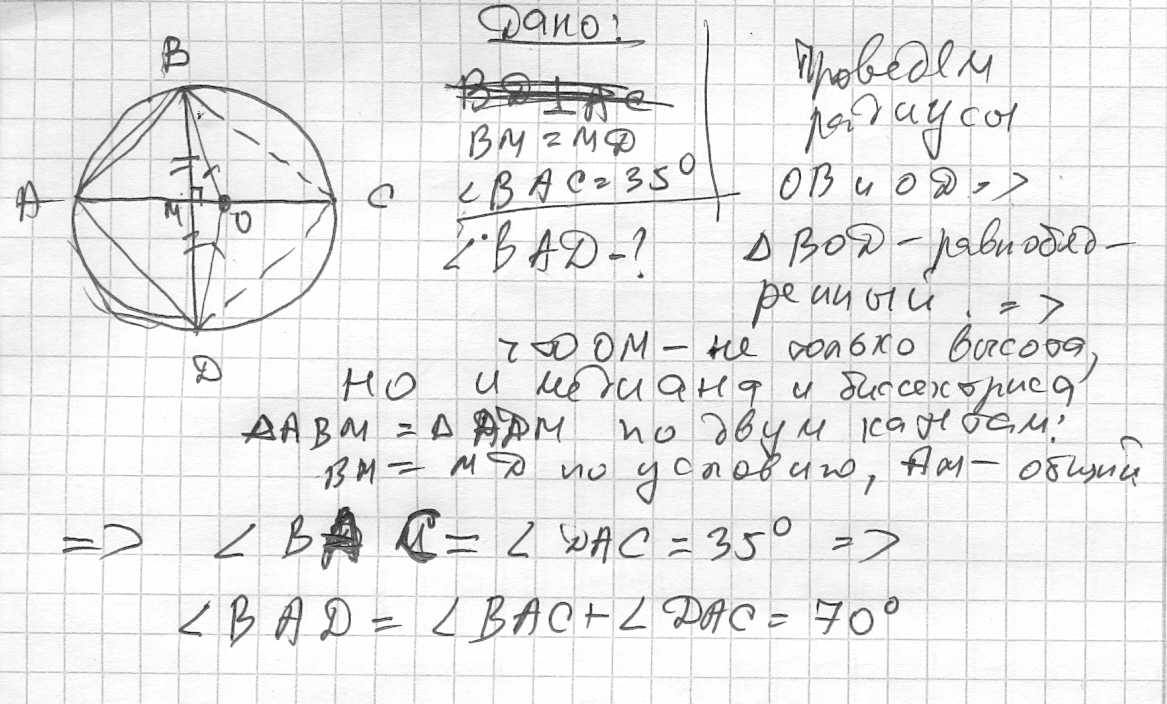 B
A
M
O
C
D
Дано:
BD ⊥ AC
BM = MD
∠BAC = 35°
∠BAD - ?
Проведем
радиусы
OB и OD =>
Δ BOD - равнобед-
ренный. =>
OM - не только высота,
но и медиана и биссектриса
ΔABM = Δ ADM по двум катетам:
BM = MD по условию, AM - общий
=> ∠ BAC = ∠ DAC = 35° =>
∠ BAD = ∠ BAC + ∠ DAC = 70°